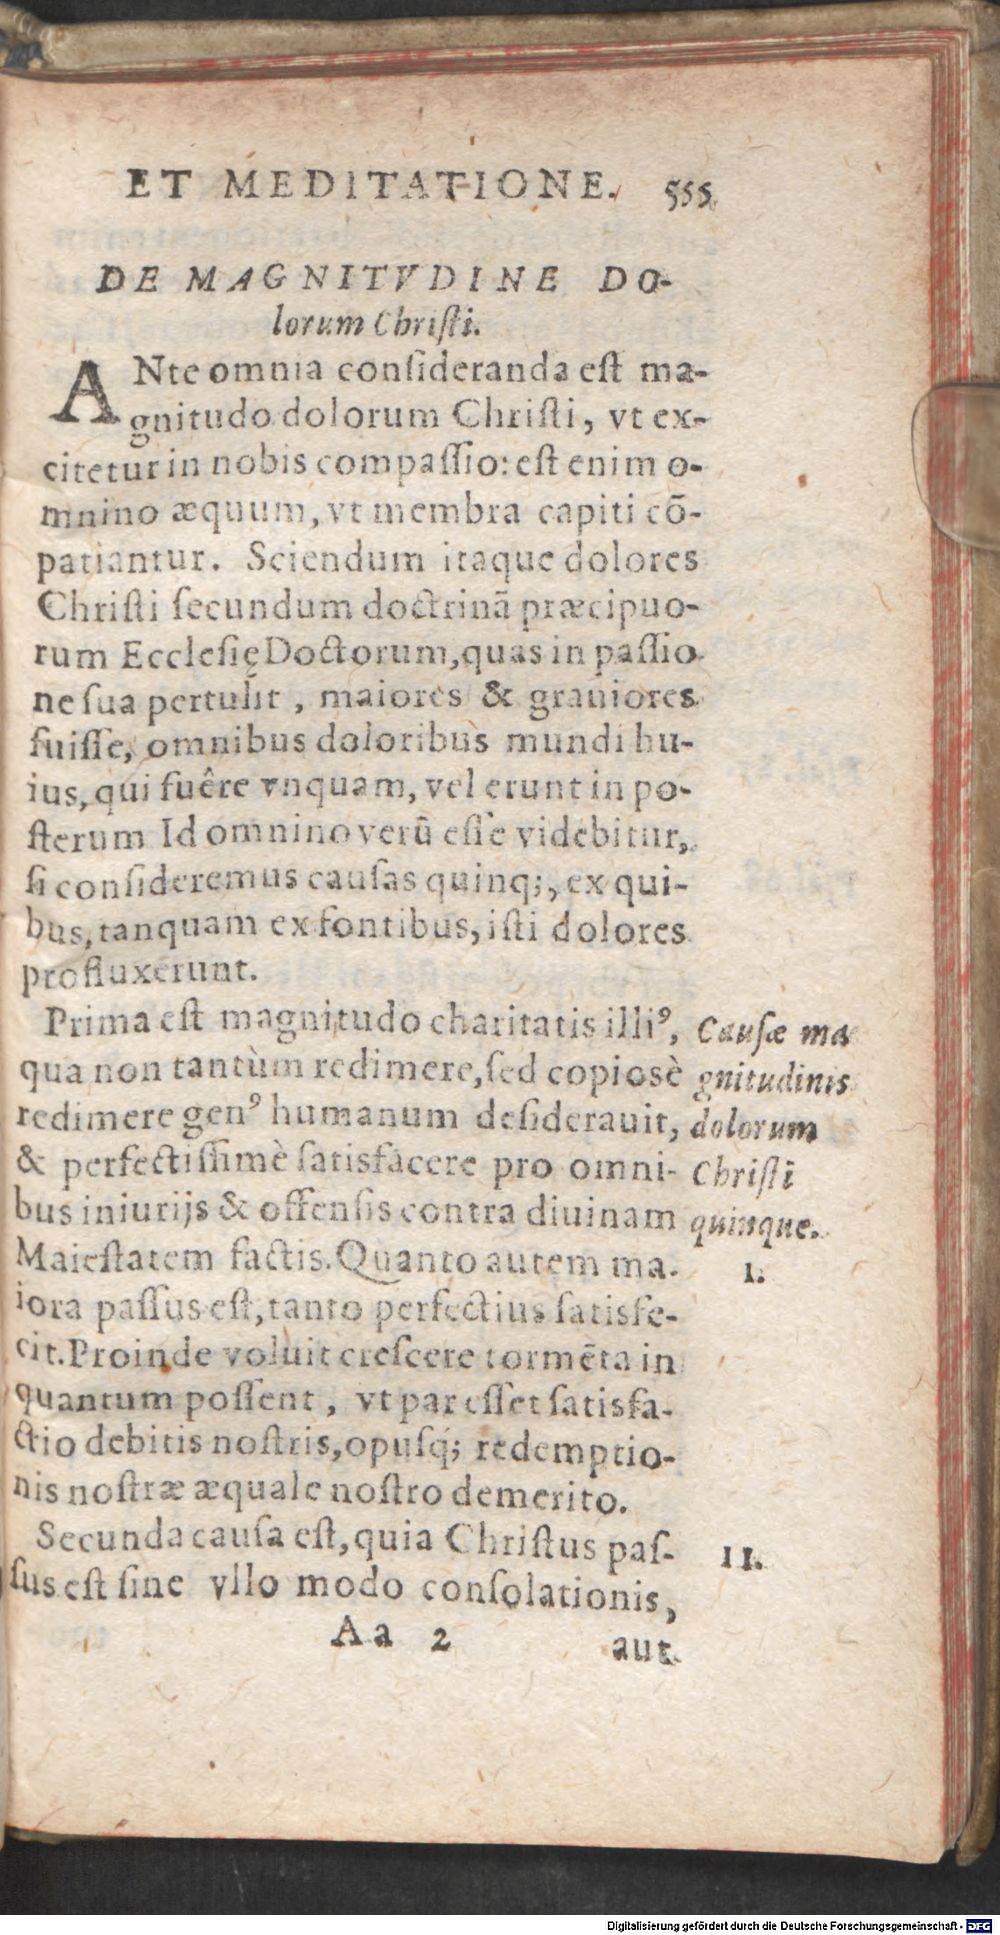 ET MEDITATIONE. 555
DE MAGNITVDINE DO-
lorum Chriſti.
ANte omnia conſideranda eſt ma-
gnitudo dolorum Chriſti, vt ex-
citetur in nobis compaſſio: eſt enim o-
mnino æquum, vt membra capiti cō-
patiantur. Sciendum itaque dolores
Chriſti ſecundum doctrinā præcipuo-
rum Eccleſię Doctorum, quas in paſſio
ne ſua pertulit, maiores & grauiores
fuiſſe, omnibus doloribus mundi hu-
ius, qui fuêre vnquam, vel erunt in po-
ſterum Id omnino verū eſſe videbitur,
ſi conſideremus cauſas quinq;, ex qui-
bus, tanquam ex fontibus, iſti dolores
profluxerunt.
Prima eſt magnitudo charitatis illiꝰ,
qua non tantùm redimere, ſed copiosè
redimere genꝰ humanum deſiderauit,
& perfectiſſimè ſatisfacere pro omni-
bus iniurijs & offenſis contra diuinam
Maieſtatem factis. Quanto autem ma-
iora paſſus eſt, tanto perfectius ſatisfe-
cit. Proinde voluit creſcere tormēta in
quantum poſſent, vt par eſſet ſatisfa-
ctio debitis noſtris, opuſq́; redemptio-
nis noſtræ æquale noſtro demerito.
Secunda cauſa eſt, quia Chriſtus paſ-
ſus eſt ſine vllo modo conſolationis,
Aa 2 aut
Cauſæ ma
gnitudinis
dolorum
Chriſti
quinque.
1.
11.
Digitalisierung gefördert durch die Deutsche Forschungsgemeinschaft - DFG